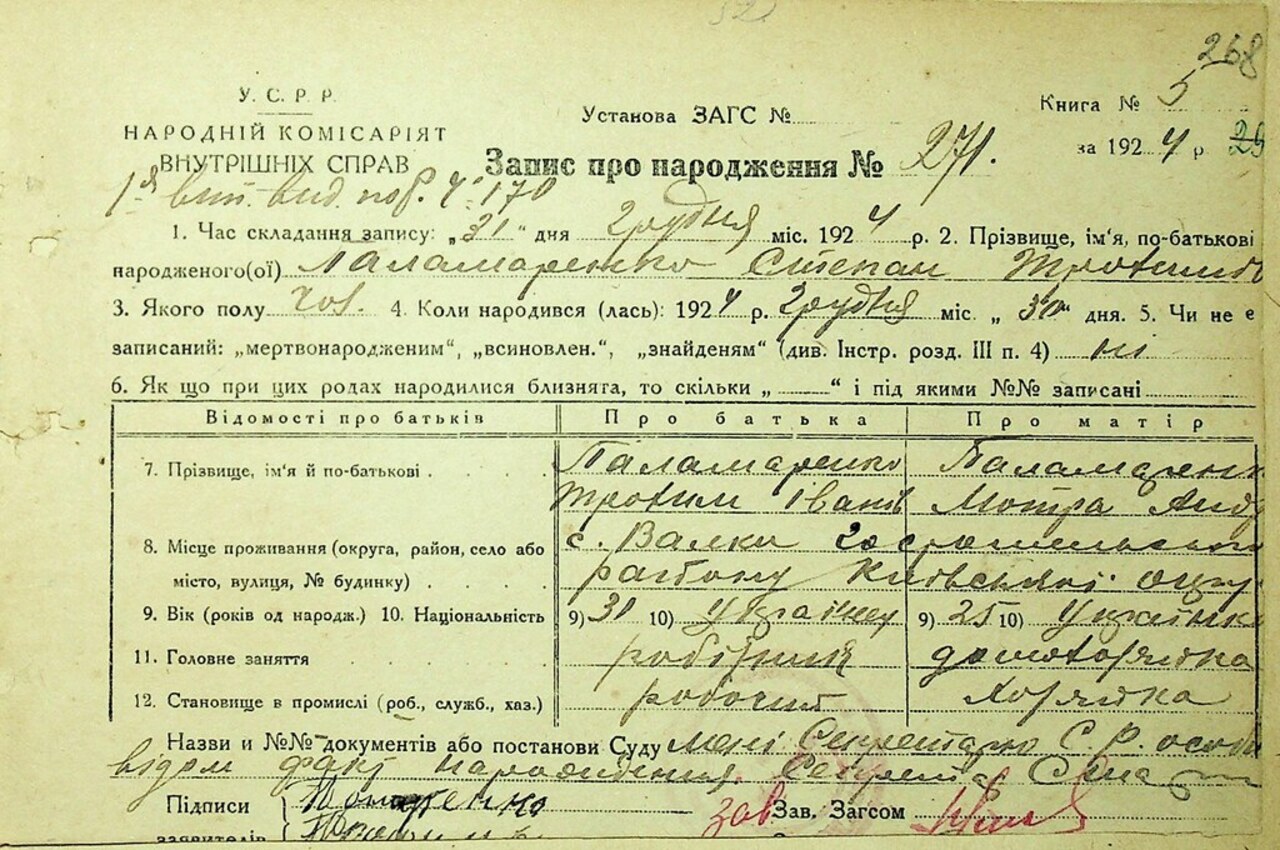 268
У. С. Р. Р.
НАРОДНІЙ КОМІСАРІЯТ
ВНУТРІШНІХ СПРАВ
Установа ЗАГС №
Книга № 5
за 1924 р. 29
Запис про народження № 271.
1. Час складання запису: „31“ дня Грудня міс. 1924 р. 2. Прізвище, ім'я, по-батькові
народженого(ої) Паламаренко Степан Трохимов
3. Якого полу чол. 4. Коли народився (лась): 1924 р. Грудня міс. „30“ дня. 5. Чи не є
записаний: „мертвонародженим“, „всиновлен.“, „знайденям“ (див. Інстр. розд. III п. 4) ні
6. Як що при цих родах народилися близнята, то скільки „ “ і під якими №№ записані
Відомості про батьків Про батька Про матір
7. Прізвище, ім'я й по-батькові Паламаренко Паламаренк
Трохим Іванів Мотра Анд
8. Місце проживання (округа, район, село або с. Валки
місто, вулиця, № будинку) району Київської окру
9. Вік (років од народж.) 10. Національність 9) 31 10) Українец 9) 25 10) Українка
11. Головне заняття робітник домохазяйка
12. Становище в промислі (роб., служб., хаз.) робочий хазяйка
Назви и №№ документів або постанови Суду мені Секретарю С. Р. особ
відом факт народження. Секретар
Підписи
заявителів
зав Зав. Загсом